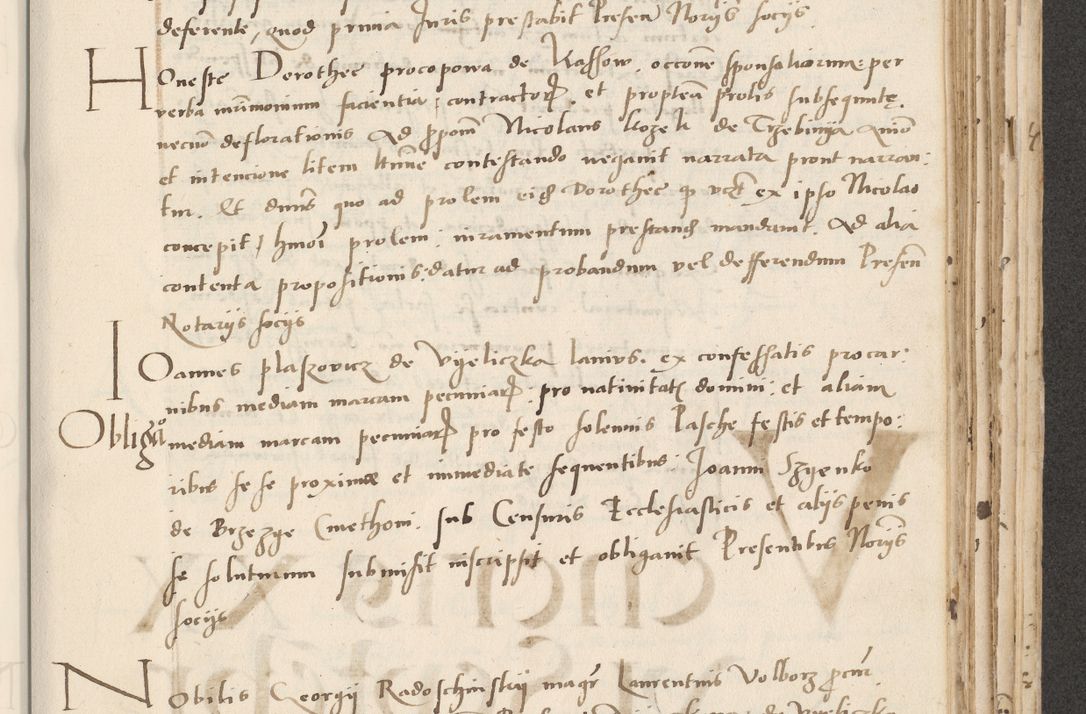 deferente, quod primia Iuris prestabit Presen Noriis sociis
Honeste Dorothee procopowa de Kassow. occone sponsaliorum per
verba mrimonium facientia, contractor, et propteā prolis subsequute
necnō deflorationis Ad ppoitam Nicolaus kozeli de Trzebinya animo
et intencione litem ltime contestando negavit narrata prout narran:
tur. Et dnus quo ad prolem eid Dorothee q vt ex ipso Nicolao
concepit, hmoi prolem: iuramentum prestand mandavit. Ad alia
contenta propositionis: datur ad probandum vel defferendum Presen
Notariis sociis
Ioannes plaszovicz de Vyeliczka lanius. ex confessatis procar:
nibus mediam marcam pecuniar: pro nativitate domini: et aliam
Obligao mediam marcam pecuniar pro festo solennis Pasche festis et tempo:
ribus se se proxime et immediate sequentibus: Joanni Szyenko
de Brzezye Cmethoni. sub Censuris Ecclesiasticis et aliis penis
se soluturum submisit inscripsit et obligavit Presentibus Noriis
sociis
Nobilis Georgii Radoschinskii magr Laurentius Volborz pcur